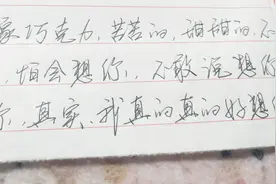 巧克力,苦苦的,甜甜的,不
,怕会想你,不敢说想你
你,真实,我真的真的好想